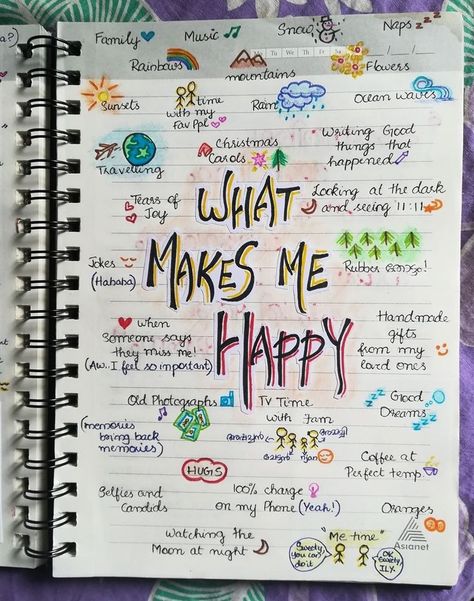 Family
Music
Snow
Naps zzz
Mo Tu We Th Fr Sa
Rainbows
mountains
Flowers
Sunsets
time
with my
Fav Ppl
Rain
Ocean waves
Travelling
Christmas
Carols
Writing Good
things that
happened
Tears of
Joy
WHAT
MAKES ME
HAPPY
Looking at the dark
and seeing 11:11
Jokes
(Hahaha)
Rubber
When
someone says
they miss me!
(Aw.. I feel so important)
Handmade
gifts
from my
loved ones
Old Photographs
(memories
bring back
memories)
TV Time
with Fam
zz
Good
Dreams
zz
HUGS
Coffee at
Perfect temp.
Selfies and
Candids
100% charge
on my Phone (Yeah!)
Oranges
Watching the
Moon at night
"Me time"
Sweety,
You can
do it
OK
Sweety,
ILY.
Asianet